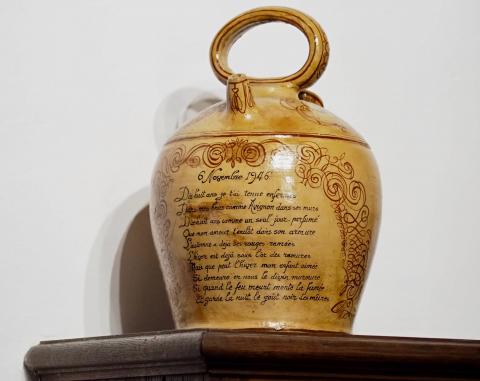 6 Novembre 1946
Dix huit ans je t'ai tenue enfermée
Dans mes bras comme Avignon dans ses murs
Dix huit ans comme un seul jour parfumé
Que mon amour t'eulût dans son armure
L'automne a déjà ses rouges ramées
L'hiver est déjà sous l'or des ramures
Mais que peut l'hiver mon enfant aimée
S'il demeure en nous le divin murmure
Si quand le feu meurt monte la fumée
Et garde la nuit le goût noir des mûres